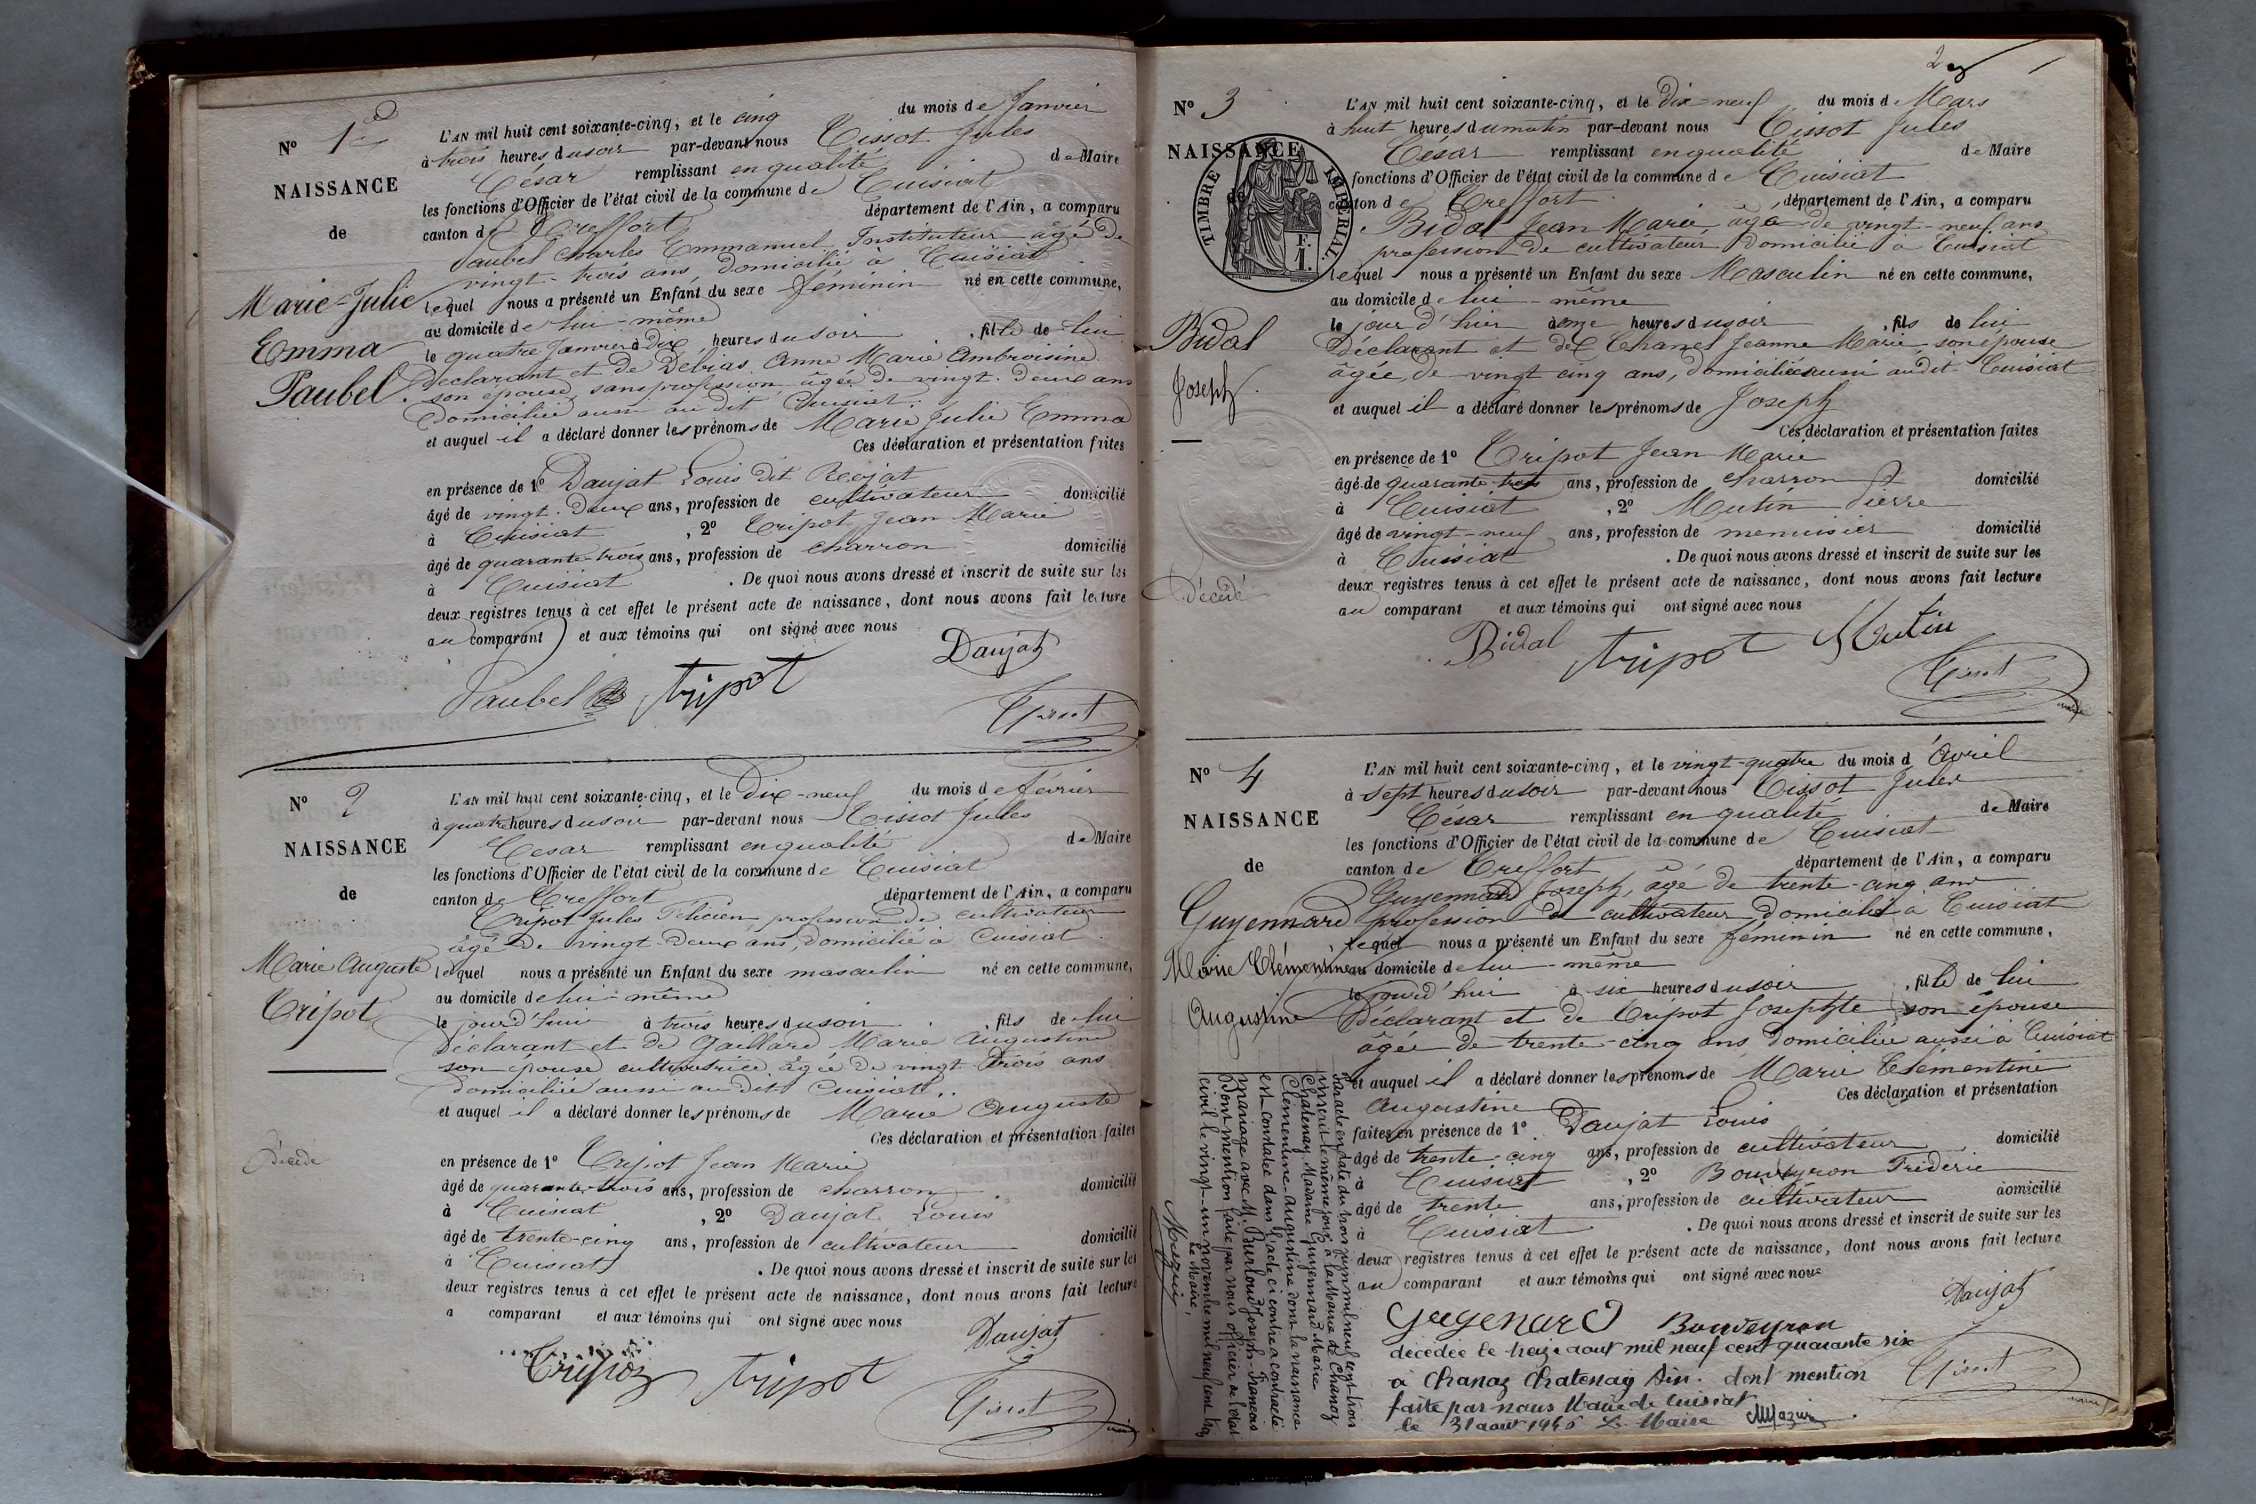 N° 1er
NAISSANCE
de
Marie-Julie
Emma
Paubel.
L'AN mil huit cent soixante-cinq, et le cinq du mois de Janvier
à trois heures du soir par-devant nous Tissot Jules
César remplissant en qualité de Maire
les fonctions d'Officier de l'état civil de la commune de Cuisiat
canton de Treffort département de l'Ain, a comparu
Paubel Charles Emmanuel, Instituteur âgé de
vingt-trois ans, domicilié à Cuisiat
lequel nous a présenté un Enfant du sexe féminin né en cette commune,
au domicile de lui-même
le quatre Janvier à dix heures du soir, fille de lui
Déclarant et de Debias Anne Marie Ambroisine
son épouse, sans profession âgée de vingt-deux ans
domiciliée aussi au dit Cuisiat.
et auquel il a déclaré donner les prénoms de Marie Julie Emma
Ces déclaration et présentation faites
en présence de 1° Daujat Louis dit
âgé de vingt-deux ans, profession de cultivateur domicilié
à Cuisiat, 2° Tripot Jean Marie
âgé de quarante-trois ans, profession de charron domicilié
à Cuisiat. De quoi nous avons dressé et inscrit de suite sur les
deux registres tenus à cet effet le présent acte de naissance, dont nous avons fait lecture
au comparant et aux témoins qui ont signé avec nous
Daujat
Paubel tripot
Tissot
N° 2
NAISSANCE
de
Marie Auguste
Tripot
Décédé
L'AN mil huit cent soixante-cinq, et le Dix-neuf du mois de février
à quatre heures du soir par-devant nous Tissot Jules
César remplissant en qualité de Maire
les fonctions d'Officier de l'état civil de la commune de Cuisiat
canton de Treffort département de l'Ain, a comparu
Tripot Jules Félicien profession de cultivateur
âgé de vingt-deux ans, domicilié à Cuisiat
lequel nous a présenté un Enfant du sexe masculin né en cette commune,
au domicile de lui-même
le jourd'hui à trois heures du soir, fils de lui
Déclarant et de Gaillard Marie Augustine
son épouse cultivatrice âgée de vingt trois ans
domiciliée aussi au dit Cuisiat.
et auquel il a déclaré donner les prénoms de Marie Auguste
Ces déclaration et présentation faites
en présence de 1° Tripot Jean Marie
âgé de quarante-trois ans, profession de charron domicilié
à Cuisiat, 2° Daujat Louis
âgé de trente-cinq ans, profession de cultivateur domicilié
à Cuisiat. De quoi nous avons dressé et inscrit de suite sur les
deux registres tenus à cet effet le présent acte de naissance, dont nous avons fait lecture
a comparant et aux témoins qui ont signé avec nous
Daujat
Tripot tripot
Tissot
2
N° 3
NAISSANCE
de
TIMBRE IMPERIAL.
F.
1.
Bidal
Joseph.
Décédé
L'AN mil huit cent soixante-cinq, et le Dix-neuf du mois de Mars
à huit heures du matin par-devant nous Tissot Jules
César remplissant en qualité de Maire
les fonctions d'Officier de l'état civil de la commune de Cuisiat
canton de Treffort département de l'Ain, a comparu
Bidal Jean Marie âgé de vingt-neuf ans
profession de cultivateur, domicilié à Cuisiat
lequel nous a présenté un Enfant du sexe Masculin né en cette commune,
au domicile de lui-même
le jour d'hier à heures du soir, fils de lui
Déclarant et de Chanel Jeanne Marie son épouse
âgée de vingt cinq ans, domiciliée aussi audit Cuisiat
et auquel il a déclaré donner les prénoms de Joseph
Ces déclaration et présentation faites
en présence de 1° Tripot Jean Marie
âgé de quarante-trois ans, profession de charron domicilié
à Cuisiat, 2° Mutin Pierre
âgé de vingt-neuf ans, profession de menuisier domicilié
à Cuisiat. De quoi nous avons dressé et inscrit de suite sur les
deux registres tenus à cet effet le présent acte de naissance, dont nous avons fait lecture
au comparant et aux témoins qui ont signé avec nous
Bidal tripot Mutin
Tissot
N° 4
NAISSANCE
de
Guyennard
Marie Clémentine
Augustine
L'AN mil huit cent soixante-cinq, et le vingt-quatre du mois d'Avril
à sept heures du soir par-devant nous Tissot Jules
César remplissant en qualité de Maire
les fonctions d'Officier de l'état civil de la commune de Cuisiat
canton de Treffort département de l'Ain, a comparu
Guyennard Joseph, âgé de trente-cinq ans
profession de cultivateur domicilié à Cuisiat
lequel nous a présenté un Enfant du sexe féminin né en cette commune,
au domicile de lui-même
le jourd'hui à six heures du soir, fille de lui
Déclarant et de Tripot Josephte son épouse
âgée de trente-cinq ans domiciliée aussi à Cuisiat
et auquel il a déclaré donner les prénoms de Marie Clémentine
Augustine Ces déclaration et présentation
faites en présence de 1° Daujat Louis
âgé de trente-cinq ans, profession de cultivateur domicilié
à Cuisiat, 2° Bouveyron Fréderic
âgé de trente ans, profession de cultivateur domicilié
à Cuisiat. De quoi nous avons dressé et inscrit de suite sur les
deux registres tenus à cet effet le présent acte de naissance, dont nous avons fait lecture
au comparant et aux témoins qui ont signé avec nous
Daujat
Guyenard Bouveyron
Tissot
décédée le treize aout mil neuf cent quarante six
a Chanoz Chatenay Ain. dont mention
faite par nous Maire de Cuisiat
le 31 aout 1946 Le Maire
Par acte en date du trois juin mil neuf cent trois
inscrit le même jour à la Mairie de Chanoz
Chatenay, Madame Guyennard Marie
Clémentine-Augustine dont la naissance
est constatée dans l'acte ci contre a contracté
mariage avec M. Burloud Joseph-François
Dont mention faite par nous officier de l'état
civil le vingt-un novembre mil neuf cent
Le Maire,